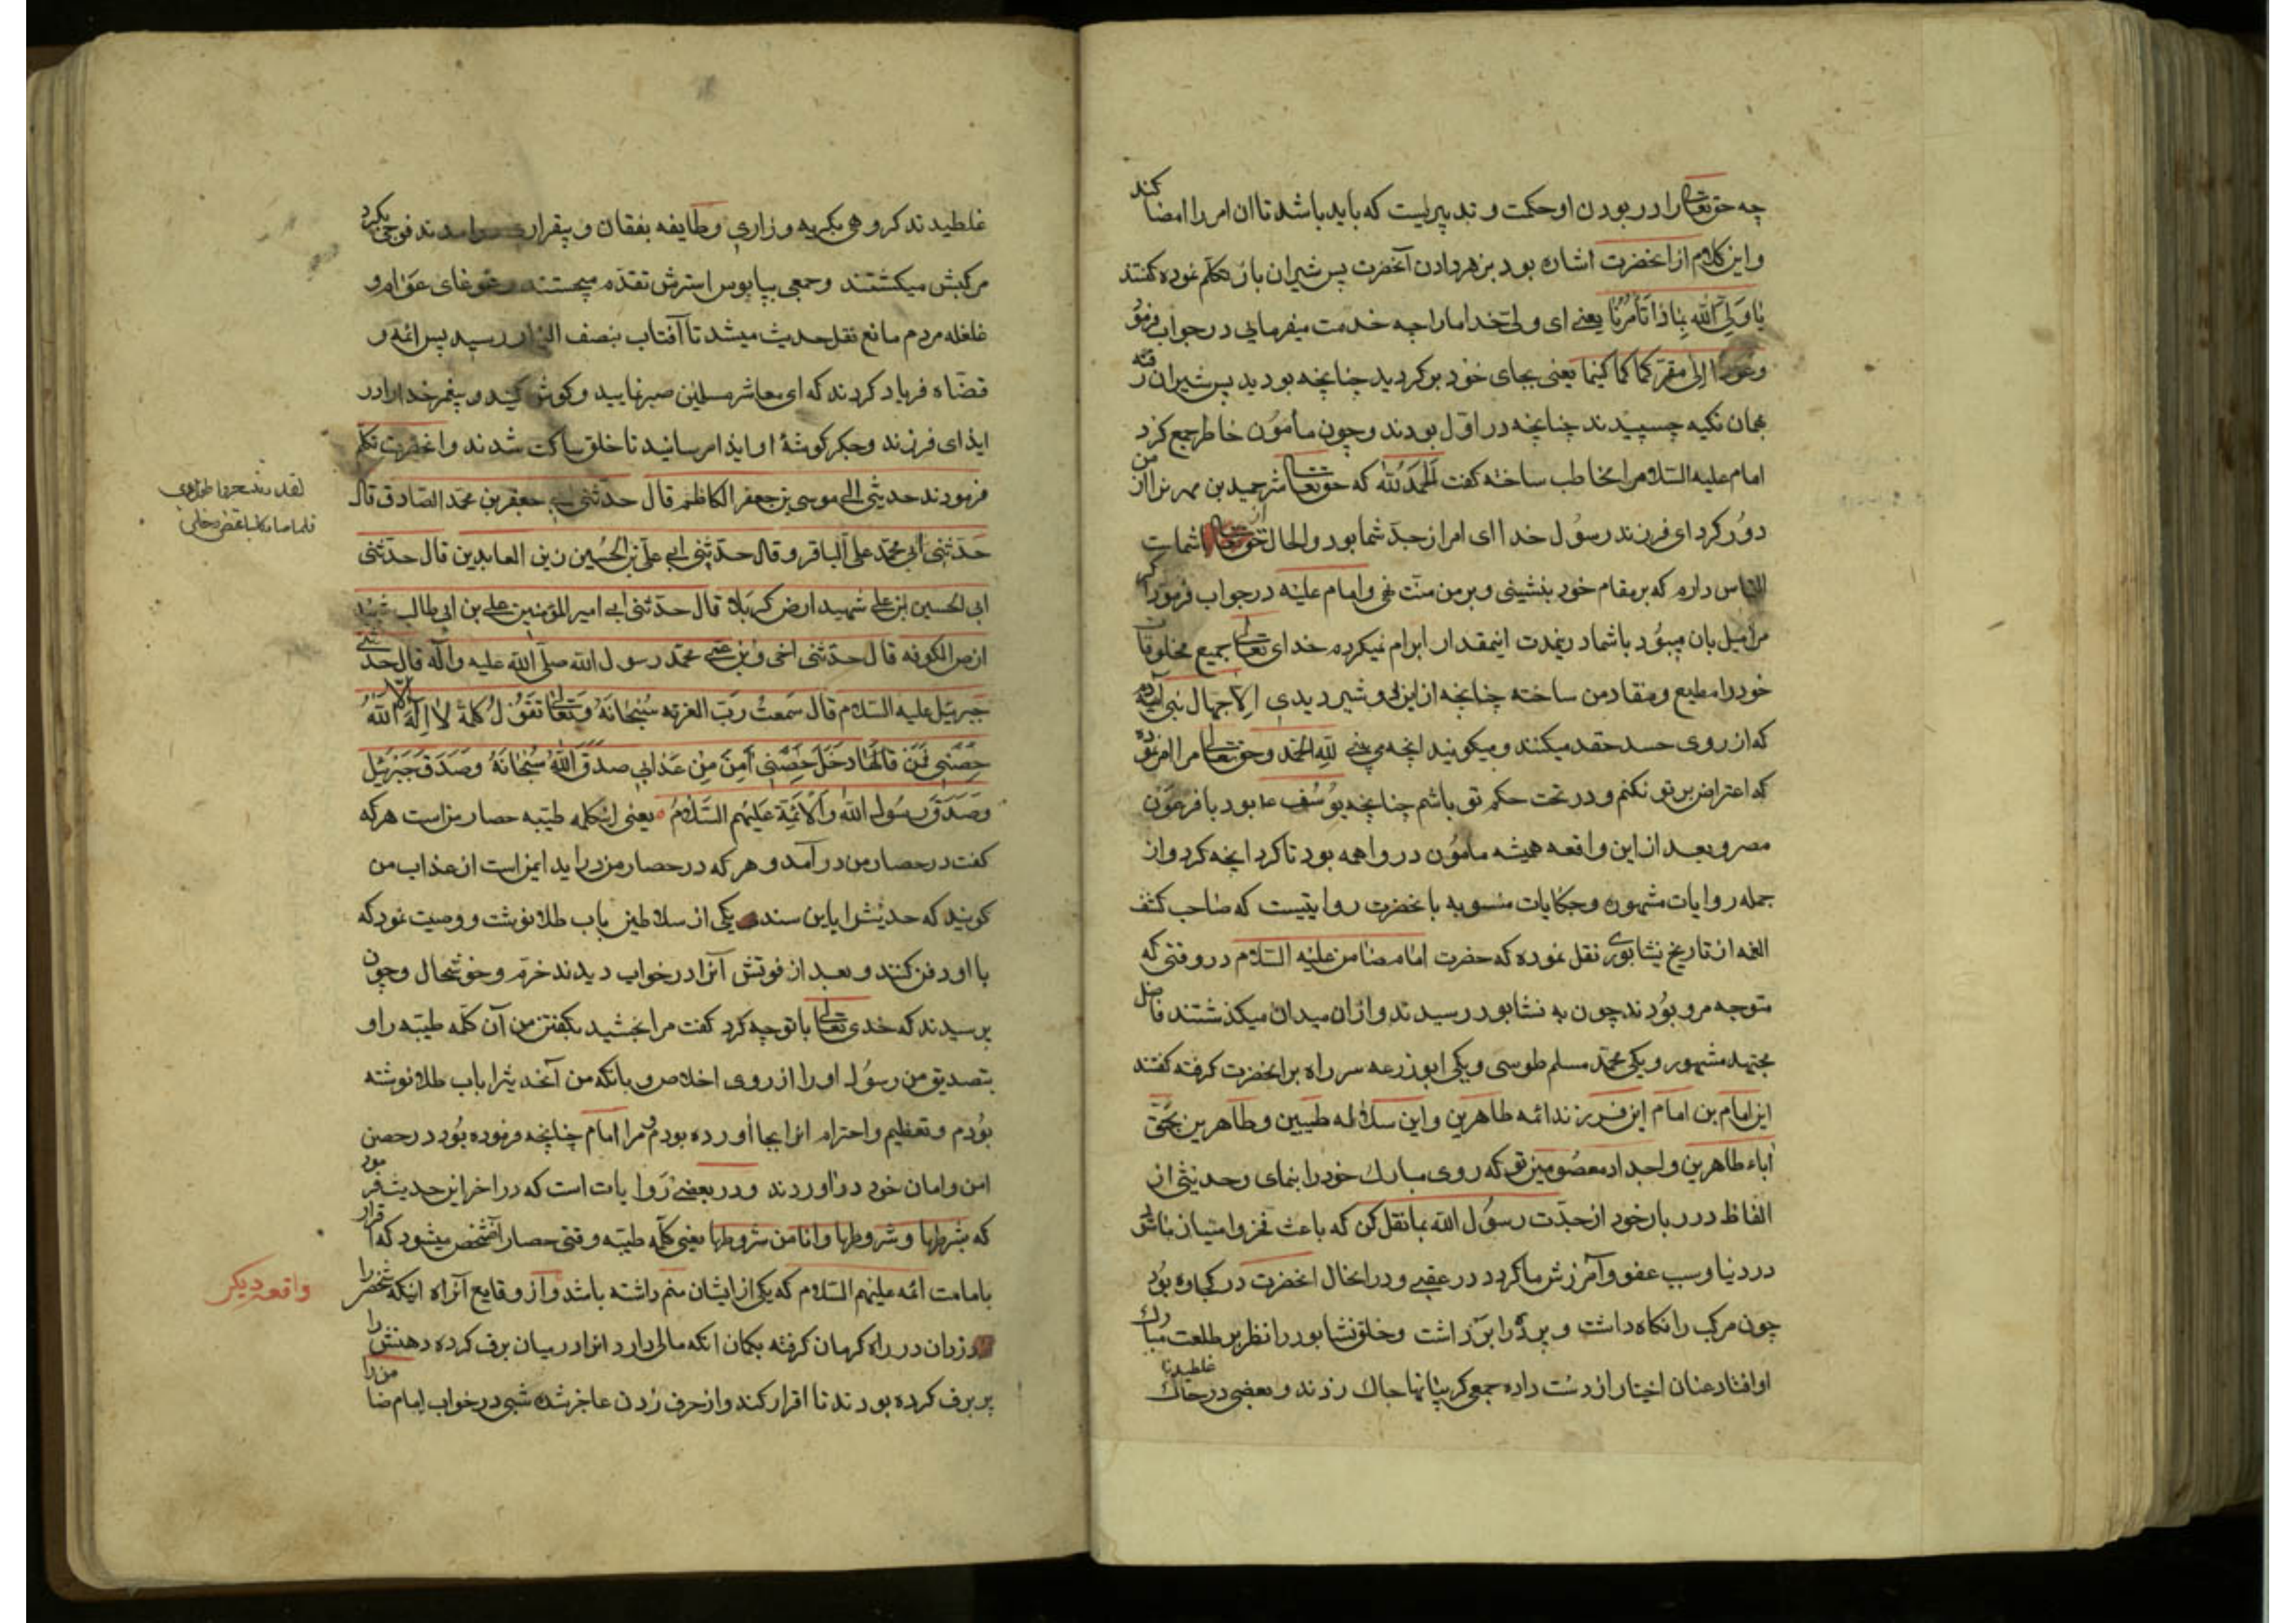 چه حق تعالی را در بودن او حکمت و تدبیریست که باید باشد تا ان امر را امضا کند
و این کلام از انحضرت اشاره بود بزهر دادن آنحضرت پس شیران باز تکلم نموده کفتند
یا وَلِیَّ اللّه بِماذا تَأمُرُنا یعنی ای ولی خدا ما را چه خدمت میفرمایی در جواب فرمود
عُودا اِلی مقرّ کما کما کنتما یعنی بجای خود برکردید چنانچه بودید پس شیران رفته
بهمان تکیه چسپیدند چنانچه در اوّل بودند و چون مأمُون خاطر جمع کرد
امام علیه السلام را مخاطب ساخته کفت اَلحَمدُ لِلّه که حق تعالی شر حمید بن مهران را از من
دوُر کرد ای فرزند رسوُل خدا این امر از جدّ شما بود و الحال حق شماست
الناس دارم که بر مقام خود بنشینی و بر من منّت نهی و امام علیه در جواب فرمود اکر
مرا میل بان میبوُد با شما در ینمدت اینمقدار ابرام نمیکردم خدای تعالی جمیع مخلوقات
خود را مطیع و منقاد من ساخته چنانچه از این دو شیر دیدی اِلا جهال بنی آدم
که از روی حسد حقد میکنند و میکویند انچه می بینی لِلّهِ الحَمد و حق تعالی مرا امر نموده
که اعتراض بر تو نکنم و در تحت حکم تو باشم چنانچه یوُسُف ع بود با فرعَون
مصر و بعد از این واقعه همیشه مامُون در واهمه بود تا کرد انچه کرد و از
جمله روایات مشهوره و حکایات منسوبه بانحضرت روایتیست که صاحب کشف
الغمه از تاریخ نیشابوری نقل نموده که حضرت امام ضامن علیه السّلام در وقتی که
متوجه مرو بوُدند چون به نشابور رسیدند و از ان میدان میکذشتند فاضل
مجتهد مشهور و یکی محمّد مسلم طوسی و یکی ابوزرعه سر راه بر انحضرت کرفته کفتند
این امام بن امام این فرزند ائمه طاهرین و این سلاله طیبین و طاهرین بحَقّ
اباء طاهرین و اجداد معصوُمین تو که روی مبارک خود را بنمای و حدیثی از
الفاظ درربار خود از جدّت رسوُل اللّه بما نقل کن که باعث فخر و امتیاز ما باشد
در دنیا و سبب عفو و آمرزش ما کردد در عقبی و در انحال انحضرت در کجاوه بوُد
چون مرکب را نکاه داشت و پرده را برداشت و خلق نشابور را نظر بر طلعت مبارک
او افتاد عنان اختیار از دست داده جمعی کریبانها چاک زدند و بعضی در خاک غلطیدند
غلطیدند کروهی بکریه و زاری و طایفه بفغان و بیقراری در امدند فوجی بکرد
مرکبش میکشتند و جمعی بپابوس استرش تقدّم میجستند و غوغای عَوام و
غلغله مردم مانع نقل حدیث میشد تا آفتاب بنصف النهار رسید پس ائمه و
قضّاه فریاد کردند که ای معاشر مسلمین صبر نمایید و کوش کنید و پیغمبر خدا را در
ایذای فرزند و جکر کوشهٔ او ایذا مرسانید تا خلق ساکت شدند و انحضرت تکلم
فرمودند حدیثی ابی موسی بن جعفر الکاظم قال حدّثنی ابی جعفر بن محمّد الصّادق قال
حَدّثنی أبی محمّد علی الباقر و قال حدّثنی ابی علی بن الحُسین زین العابدین قال حدّثنی
ابی الحسین ابن علی شهید ارض کربلا قال حدّثنی ابی امیر المؤمنین علی بن ابی طالب شهید
ارض الکوفه قال حدّثنی اخی و بن عمی محمّد رسول اللّه صلّی اللّه علیه و آله قال حدّثنی
جبرئیل علیه السّلام قال سَمعتُ ربّ العزته سُبحانَهُ وَتَعالی تقوُلُ کَلمةُ لا اِلَهَ اِلّا اللّهُ
حِصنی فَمَن قالَها دخَلَ حِصنی اَمِنَ مِن عَذابی صَدَقَ اللّهُ سُبحانَهُ وَصَدَقَ جَبرئیل
وَصَدَقَ رسُول اللّه وَالاَئمّة علیهم السّلام یعنی اینکلمه طیبه حصار منست هر که
کفت در حصار من در آمد و هر که در حصار من در اید ایمن است از عذاب من
کویند که حدیث را باین سند یکی از سلاطین بآب طلا نوشت و وصیت نمود که
با او دفن کنند و بعد از فوتش آنرا در خواب دیدند خرّم و خوشحال و چون
پرسیدند که خدی تعالی با تو چه کرد کفت مرا بخشید بکفتن من آن کلمه طیبّه را و
بتصدیق من رسوُل او را از روی اخلاص و بانکه من آنحدیث را باب طلا نوشته
بوُدم و تعظیم و احترام انرا بجا آورده بودم و مرا امام چنانچه فرموده بوُد در حصن
امن و امان خود در آوردند و در بعضی رَوایات است که در اخر این حدیث فرمود
که بشرطها و شروطها و انا من شروطها یعنی کلمه طیبّه وقتی حصار آنشخص میشود که اقرار
بامامت ائمه علیهم السّلام که یکی از ایشان منم داشته باشد و از وقایع آنراه اینکه شخصی را
دزدان در راه کرمان کرفته بکمان انکه مالی دارد انرا در میان برف کرده دهنش را
پر برف کرده بودند تا اقرار کند و از حرف زدن عاجز شده شبی در خواب امام ضامن را
واقعه دیکر